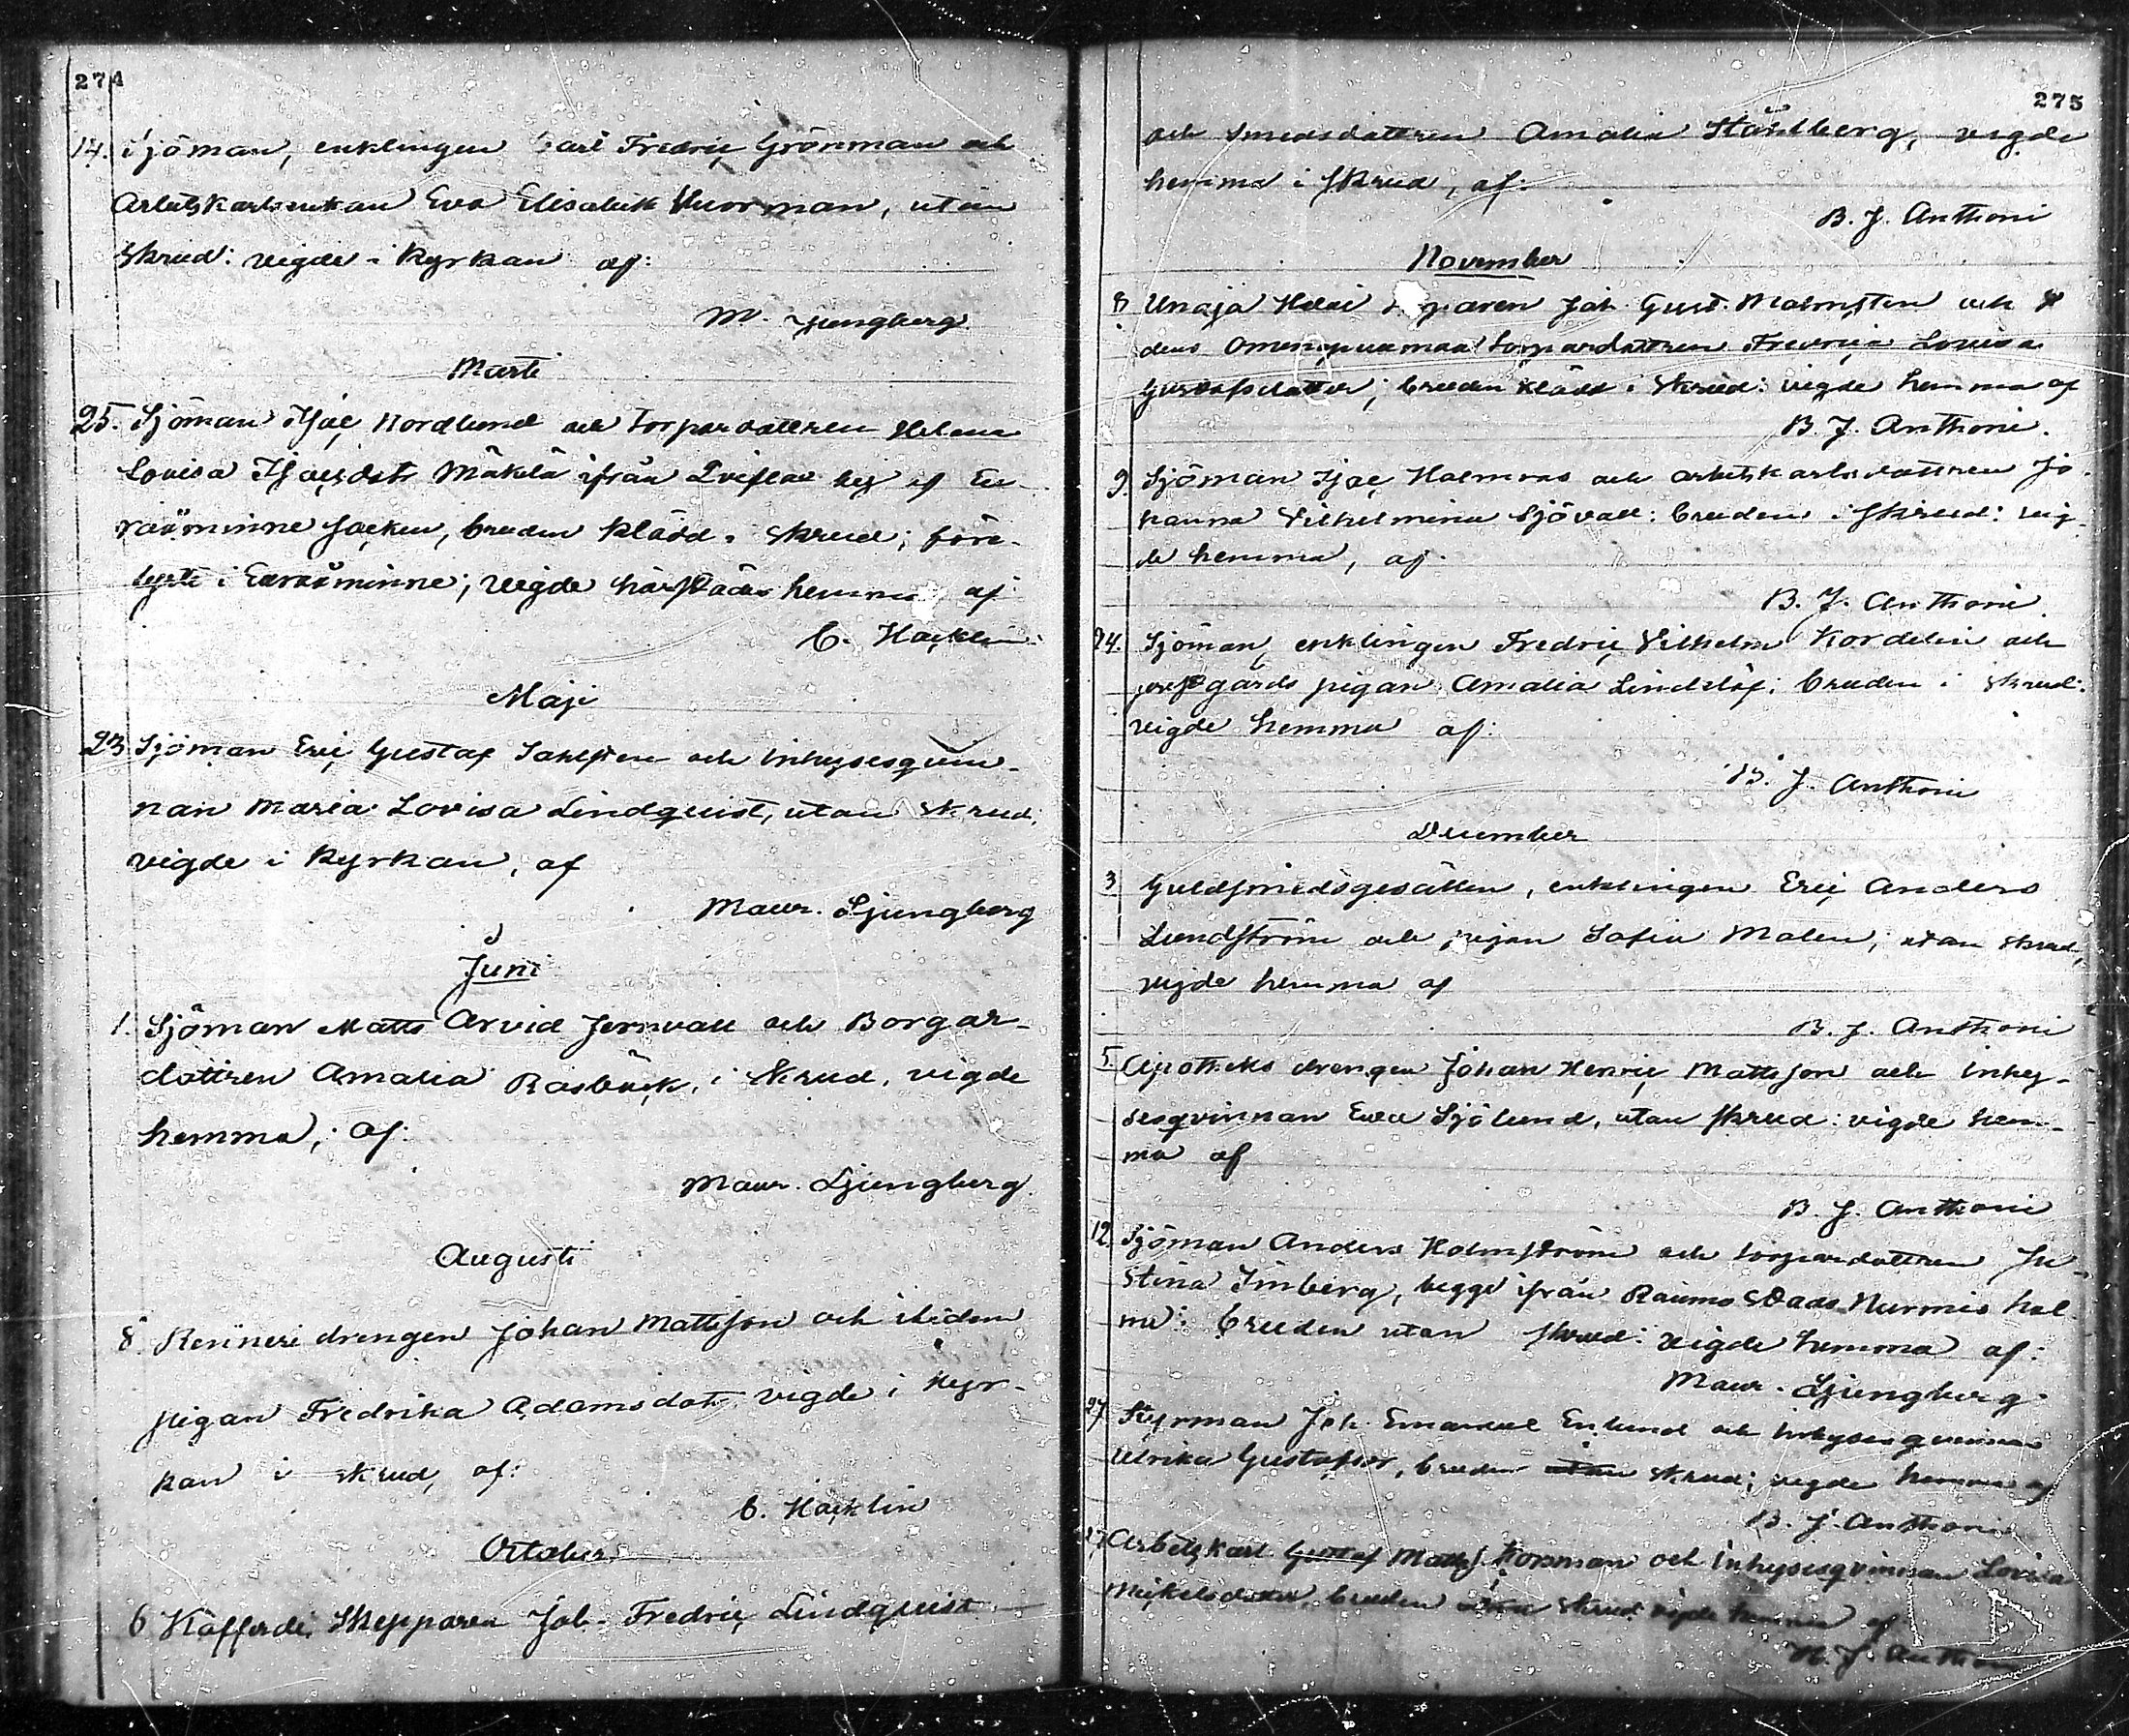 274
14. Sjöman, enklingen Carl Fredric Grönman och
Arbetskarlsenkan Eva Elisabeth Nuorman, utan
skrud: vigde i Kyrkan af:
M. Ljungberg
Marti
25. Sjöman Isac Nordlund och torpardottren Helena
Lovisa Isacsdotr Mäkelä ifrån Qviflax by af Eu-
raåminne socken, bruden klädd i skrud; före-
lyste i Euraåminne; vigde härstädes hemma af
C. Hacklin
Maji
23 Sjöman Eric Gustaf Sahlsten och Inhysesqvin-
nan Maria Lovisa Lindquist, utan skrud;
vigde i Kyrkan, af
Maur. Ljungberg
Juni
1. Sjöman Matts Arvid Jernvall och Borgar-
dottren Amalia Rosbäck, i skrud, vigde
hemma; af:
Maur. Ljungberg.
Augusti
8 drengen Johan Mattsson och ibidem
pigan Fredrika Adamsdotr vigde i Kyr-
kan i skrud, af:
C. Hacklin
October
6 Kofferdi Skepparen Joh. Fredric Lindquist
275
och Smedsdottren Amalia Ståhlberg, vigde
hemma i skrud, af:
B. J. Anthoni
November
8 Unaja Joh. Gust. Malmsten och
torpardottren Fredrica Lovisa
Gustafsdotter; bruden klädd i skrud: vigde hemma af
B. J. Anthoni.
9. Sjöman Isac Holmroos och arbetskarlsdottren Jo-
hanna Vilhelmina Sjövall: bruden i skrud: vig-
de hemma, af
B. J. Anthoni
24. Sjöman, enklingen Fredric Vilhelm Kordelin och
prestgårds pigan Amalia Lindelöf: bruden i skrud:
vigde hemma af:
B. J. Anthoni
December
3 Guldsmedsgesällen, enklingen Eric Anders
Lundström och pigan Sofia Malen; utan skrud,
vigde hemma af
B. J. Anthoni
5. Apotheks drengen Johan Henric Mattsson och Inhy-
sesqvinnan Eva Sjölund, utan skrud: vigde hem-
ma af
B. J. Anthoni
12. Sjöman Anders Holmström och torpardottren Ju-
stina Imberg, begge ifrån Raumo Stads Nurmis hol-
me: bruden utan skrud: vigde hemma af:
Maur. Ljungberg
27. Styrman Joh. Emanuel Enlund och Inhysesqvinnan
Ulrika Gustafsdr, bruden utan skrud; vigde hemma af
B. J. Anthoni
27 Arbetskarl Gustaf Matts. och Inhysesqvinnan Lovisa
Mickelsdotter, bruden utan skrud: vigde hemma af
B. J. Anthoni